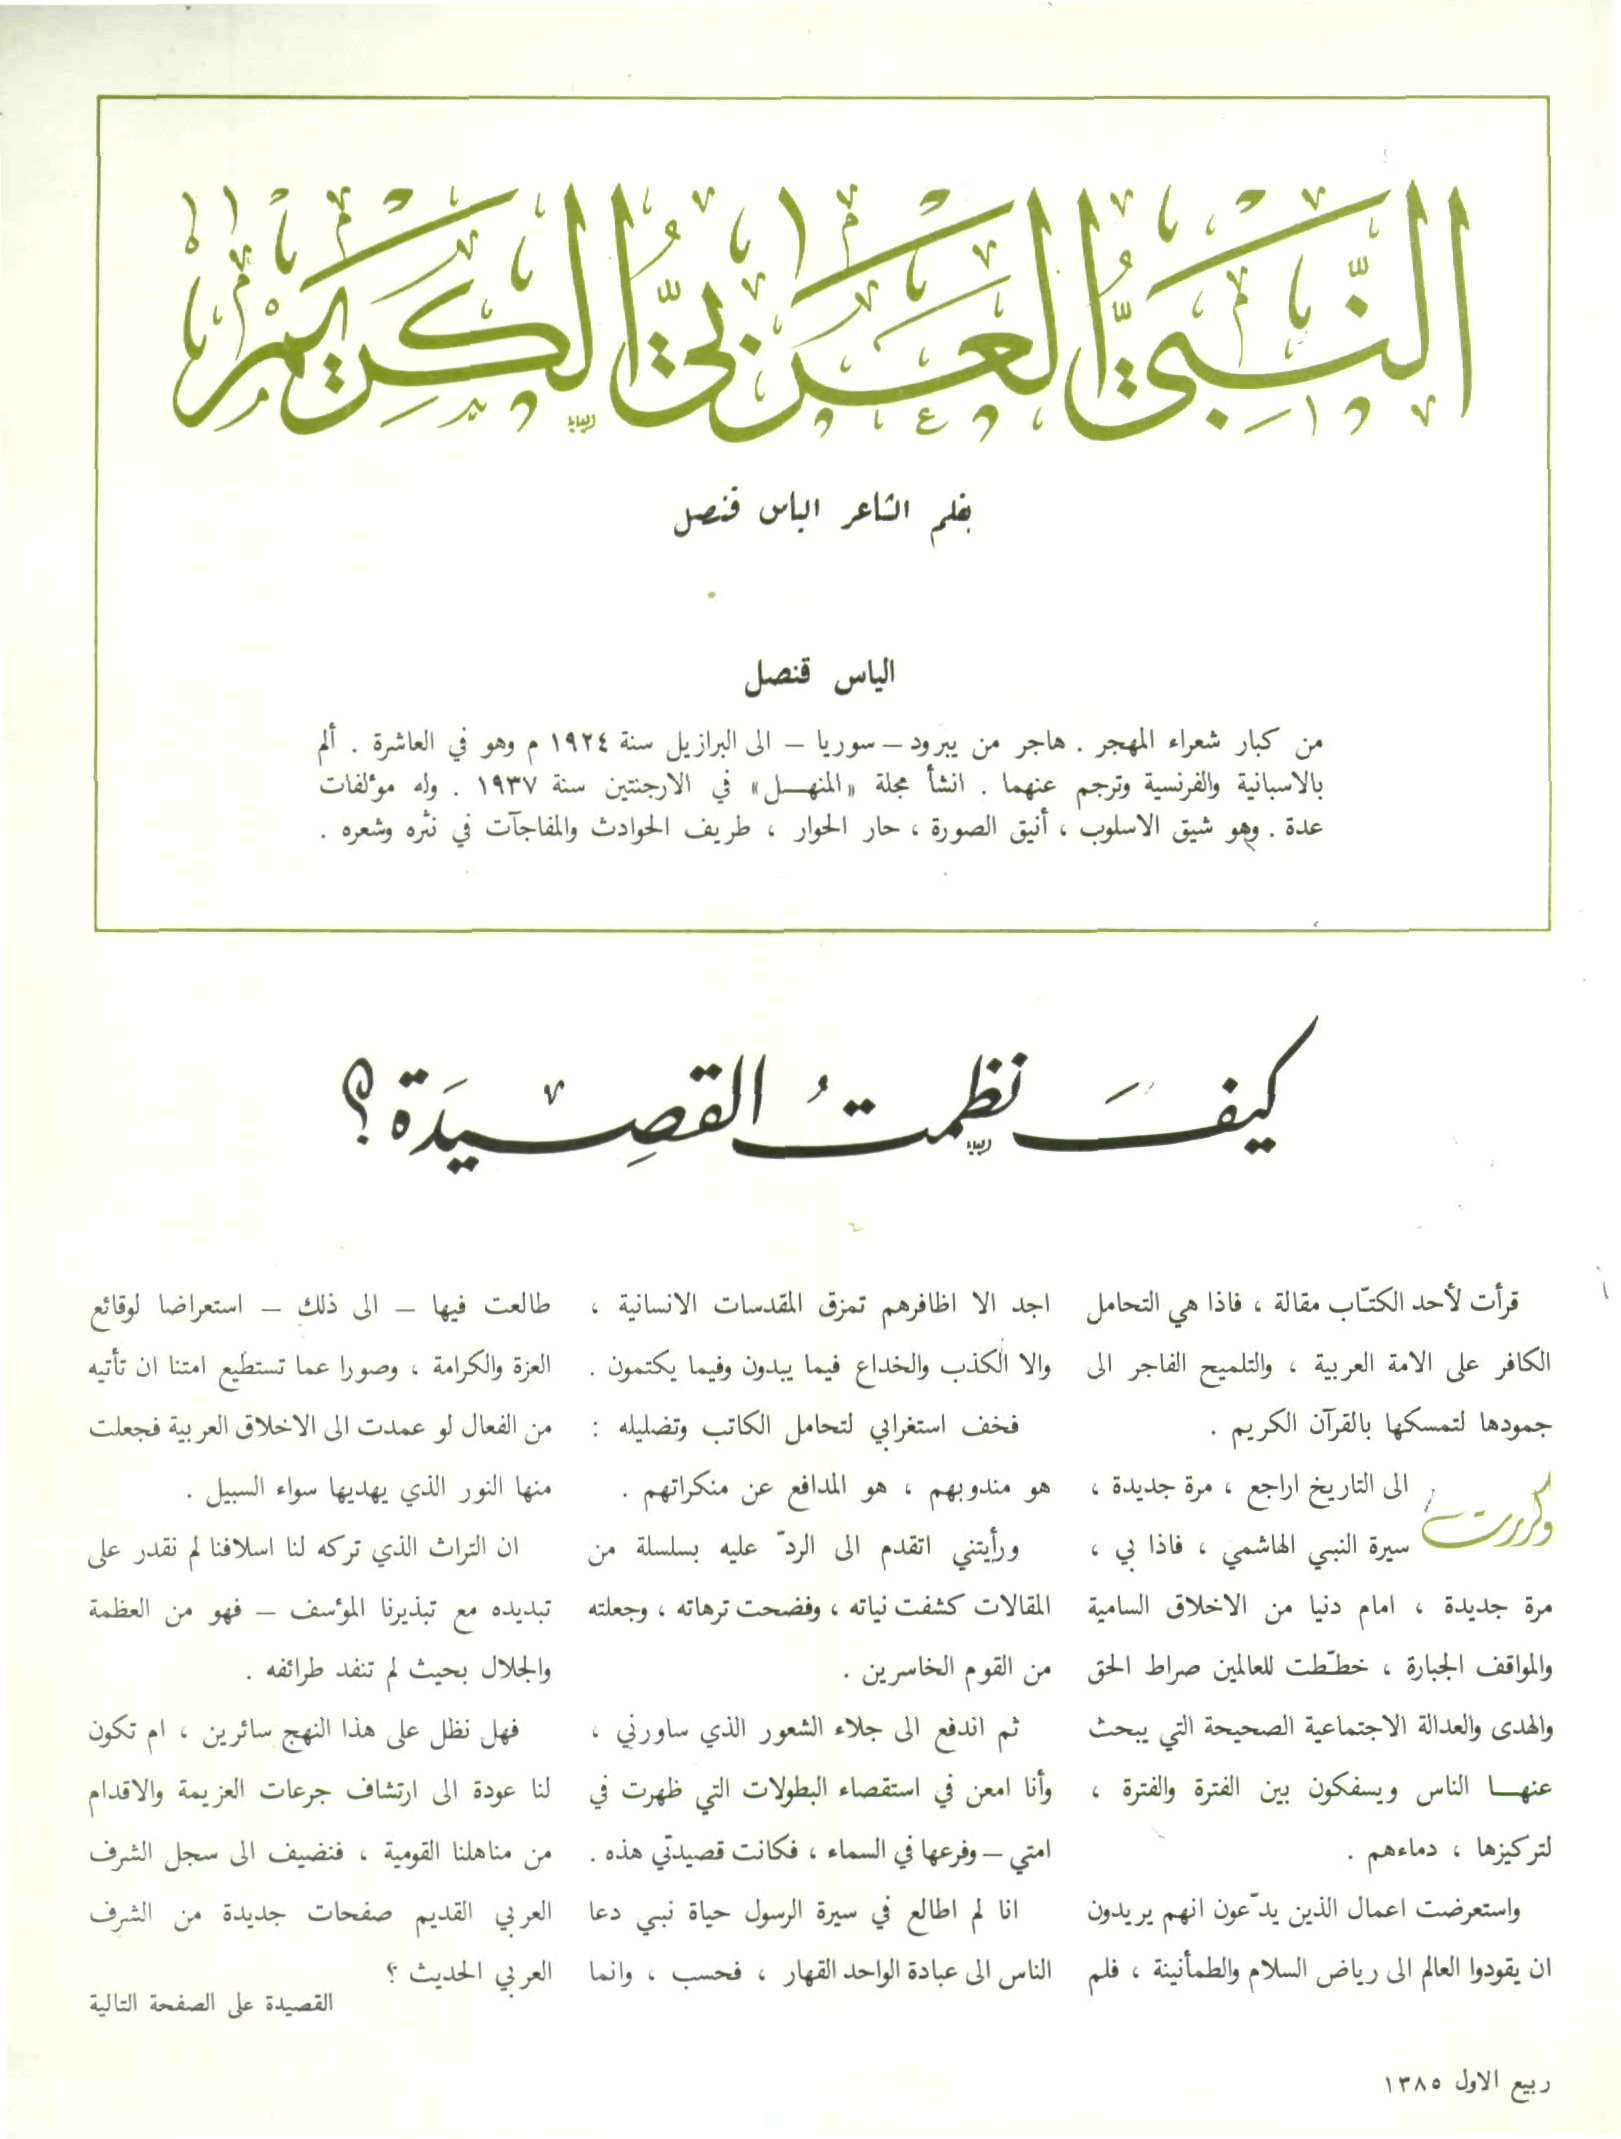 النَّبِيُّ العَرَبيُّ الكَرِيمْ
بقلم الشاعر الياس قنصل
الياس قنصل
من كبار شعراء المهجر . هاجر من يبرود – سوريا – الى البرازيل سنة ١٩٢٤ م وهو في العاشرة . ألم
بالاسبانية والفرنسية وترجم عنهما . انشأ مجلة «المنهـــل» في الارجنتين سنة ١٩٣٧ . وله مؤلفات
عدة . وهو شيق الاسلوب ، أنيق الصورة ، حار الحوار ، طريف الحوادث والمفاجآت في نثره وشعره .
كيفَ نظمتُ القصِيدَة ؟
قرأت لأحد الكتّاب مقالة ، فاذا هي التحامل
الكافر على الامة العربية ، والتلميح الفاجر الى
جمودها لتمسكها بالقرآن الكريم .
وكررت الى التاريخ اراجع ، مرة جديدة ،
سيرة النبي الهاشمي ، فاذا بي ،
مرة جديدة ، امام دنيا من الاخلاق السامية
والمواقف الجبارة ، خطّطت للعالمين صراط الحق
والهدى والعدالة الاجتماعية الصحيحة التي يبحث
عنهـــا الناس ويسفكون بين الفترة والفترة ،
لتركيزها ، دماءهم .
واستعرضت اعمال الذين يدّعون انهم يريدون
ان يقودوا العالم الى رياض السلام والطمأنينة ، فلم
اجد الا اظافرهم تمزق المقدسات الانسانية ،
والا الكذب والخداع فيما يبدون وفيما يكتمون .
فخف استغرابي لتحامل الكاتب وتضليله :
هو مندوبهم ، هو المدافع عن منكراتهم .
ورأيتني اتقدم الى الردّ عليه بسلسلة من
المقالات كشفت نياته ، وفضحت ترهاته ، وجعلته
من القوم الخاسرين .
ثم اندفع الى جلاء الشعور الذي ساورني ،
وأنا امعن في استقصاء البطولات التي ظهرت في
امتي – وفرعها في السماء ، فكانت قصيدتي هذه .
انا لم اطالع في سيرة الرسول حياة نبي دعا
الناس الى عبادة الواحد القهار ، فحسب ، وانما
طالعت فيها – الى ذلك – استعراضا لوقائع
العزة والكرامة ، وصورا عما تستطيع امتنا ان تأتيه
من الفعال لو عمدت الى الاخلاق العربية فجعلت
منها النور الذي يهديها سواء السبيل .
ان التراث الذي تركه لنا اسلافنا لم نقدر على
تبديده مع تبذيرنا المؤسف – فهو من العظمة
والجلال بحيث لم تنفد طرائفه .
فهل نظل على هذا النهج سائرين ، ام تكون
لنا عودة الى ارتشاف جرعات العزيمة والاقدام
من مناهلنا القومية ، فنضيف الى سجل الشرف
العربي القديم صفحات جديدة من الشرف
العربي الحديث ؟
القصيدة على الصفحة التالية
ربيع الاول ١٣٨٥